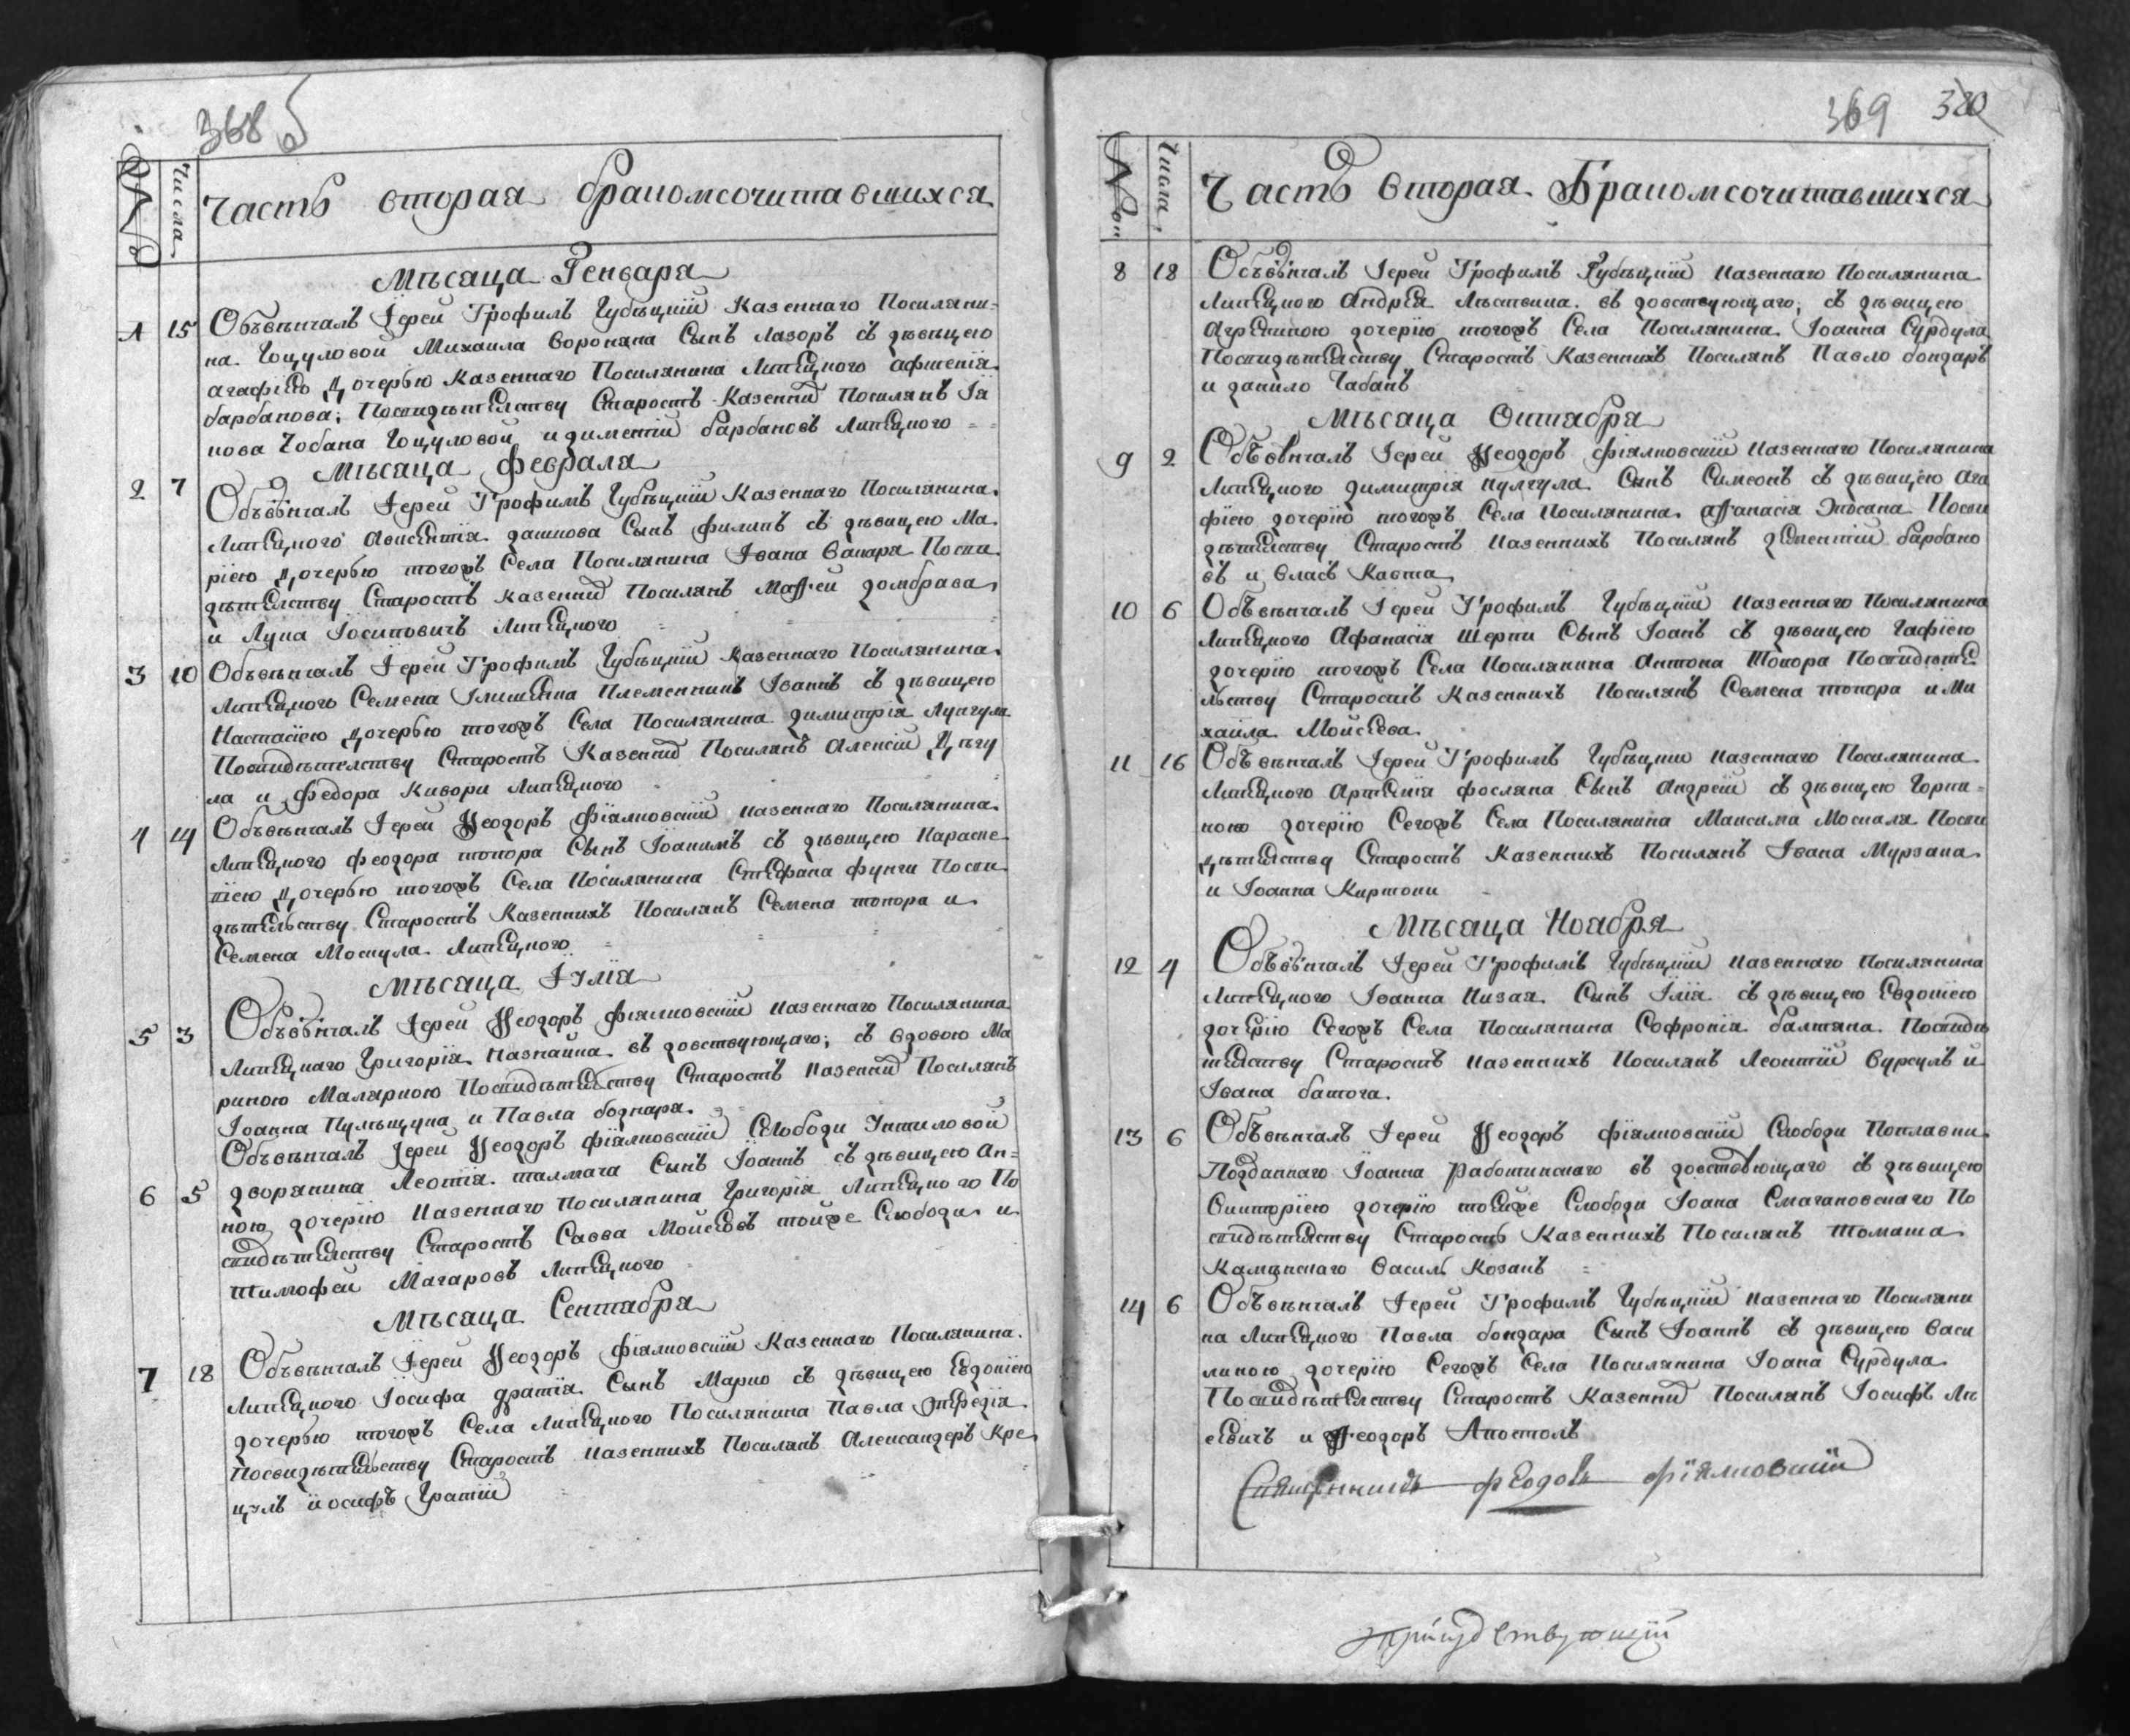 368 б
№
Числа
Часть вторая бракомсочитавшихся
Мѣсяца Генваря
1 15 Объвѣнчалъ Іерей Трофимъ Губѣцкій Казеннаго Поселяни-
на. Гоцуловой Михаила Воронана Сынъ Лазоръ съ дѣвицею
Агафіею дочерью Казеннаго Поселянина Липецкого
барбанова; Посвидѣтелству Старостъ Казенныхъ Поселянъ
нова Чобана Гоцуловой, и дименти барбановъ Липецкого
Мѣсяца февраля
2 7 Объвѣнчалъ Іерей Трофимъ Губѣцкій Казеннаго Поселянина.
Липецкого Авксентія дашкова Сынъ филипъ съ дѣвицею Ма
ріею дочерью тогожъ Села Поселянина Івана Вакара Посви
дѣтелству Старостъ Казенныхъ Поселянъ Маѳей домбрава
и Лука Іосиповичъ Липецкого
3 10 Объвѣнчалъ Іерей Трофимъ Губѣцкій Казеннаго Поселянина
Липецкого Семена Племенникъ Іваннъ съ дѣвицею
Настасіею дочерью тогожъ Села Поселянина димитрія Лунгула
Посвидѣтелству Старостъ Казенныхъ Поселянъ Алексій
ла и Федора Кивори Липецкого
4 14 Объвѣнчалъ Іерей Ѳеодоръ фіялковскій Казеннаго Поселянина
Липецкого феодора топора Сынъ Іоакимъ съ дѣвицею Параске
віею дочерью тогожъ Села Поселянина Стефана фунги Посви
дѣтельству Старостъ Казеннихъ Поселянъ Семена топора и
Семена Москула Липецкого
Мѣсяца Іуліа
5 3 Объвѣнчалъ Іерей Ѳеодоръ фіялковскій Казеннаго Поселянина
Липецкаго Григорія Казнайка въ довствующаго; съ вдовою Ма
риною Маляркою Посвидѣтельству Старостъ Казенныхъ Поселянъ
Іоанна и Павла боднара.
Объвѣнчалъ Іерей Ѳеодоръ фіялковскій Слободи
6 5 дворянина Леотія толмача Сынъ Іоаннъ съ дѣвицею Ан-
ною дочерію Казеннаго Поселянина Григорія Липецкого По
свидѣтелству Старостъ Савва Мойсеевъ тойже Слободи и
Тимофей Магаровъ Липецкого
Мѣсяца Сентабря
7 18 Объвѣнчалъ Іерей Ѳеодоръ фіялковскій Казеннаго Поселянина.
Липецкого Іосифа братія Сынъ Марко съ дѣвицею Евдокіею
дочерью тогожъ Села Липецкого Поселянина Павла
Посвидѣтельству Старостъ Казеннихъ Поселянъ Александеръ Кре
цулъ и осифъ братій
369 380
№
Числа
Часть вторая Бракомсочитавшихся
8 18 Объвѣнчалъ Іерей Трофимъ Губѣцкій Казеннаго Поселянина
Липецкого Андрея въ довствующаго; съ дѣвицею
Агрепиною дочерію тогожъ Села Поселянина Іоанна Сурдула
Посвидѣтелству Старостъ Казеннихъ Поселянъ Павло бондаръ
и данило Чабанъ
Мѣсяца Октабря
9 2 Объвѣнчалъ Іерей Ѳеодоръ фіялковскій Казеннаго Поселянина
Липецкого димитрія Сынъ Симеонъ съ дѣвицею Ага
фіею дочерію тогожъ Села Поселянина Аѳанасія Посви
дѣтелству Старостъ Казеннихъ Поселянъ дементій барбано
въ и Власъ Кавта
10 6 Объвѣнчалъ Іерей Трофимъ Губѣцкій Казеннаго Поселянина
Липецкого Афанасія Шерпи Сынъ Іоанъ съ дѣвицею Гафіею
дочерію тогожъ Села Поселянина Антона Топора Посвидѣте
льству Старостъ Казеннихъ Поселянъ Семена топора и Ми
хаила Мойсеева.
11 16 Объвѣнчалъ Іерей Трофимъ Губѣцкій Казеннаго Поселянина
Липецкого Артемія фосляка Сынъ Андрей съ дѣвицею Горпи-
ною дочерію Сегожъ Села Поселянина Максима Москаля Посви
дѣтелству Старостъ Казеннихъ Поселянъ Івана Мурзака
и Іоанна Киртоки
Мѣсяца Ноабря
12 4 Объвѣнчалъ Іерей Трофимъ Губѣцкій Казеннаго Поселянина
Липецкого Іоанна Кизая Сынъ Ілія съ дѣвицею Евдокіею
дочерію Сегожъ Села Поселянина Софронія балтяна. Посвидѣ
телству Старостъ Казеннихъ Поселянъ Леонтій Вурсулъ и
Івана батога.
13 6 Объвѣнчалъ Іерей Ѳеодоръ фіялковскій Слободи Поплавки
Подданнаго Іоанна Работинскаго въ довствующаго съ дѣвицею
дочерію тойже Слободи Іоана Смагановскаго По
свидѣтелству Старостъ Казеннихъ Поселянъ Томаша
Камѣнскаго Василь Козакъ
14 6 Объвѣнчалъ Іерей Трофимъ Губѣцкій Казеннаго Поселяни
на Липецкого Павла бондара Сынъ Іоаннъ съ дѣвицею Васи
ликою дочерію Сегожъ Села Поселянина Іоана Сурдула
Посвидѣтелству Старостъ Казенныхъ Поселянъ Іосифъ Ли
севичъ и Ѳеодоръ Апостолъ
Священникъ феодоръ фіялковскій